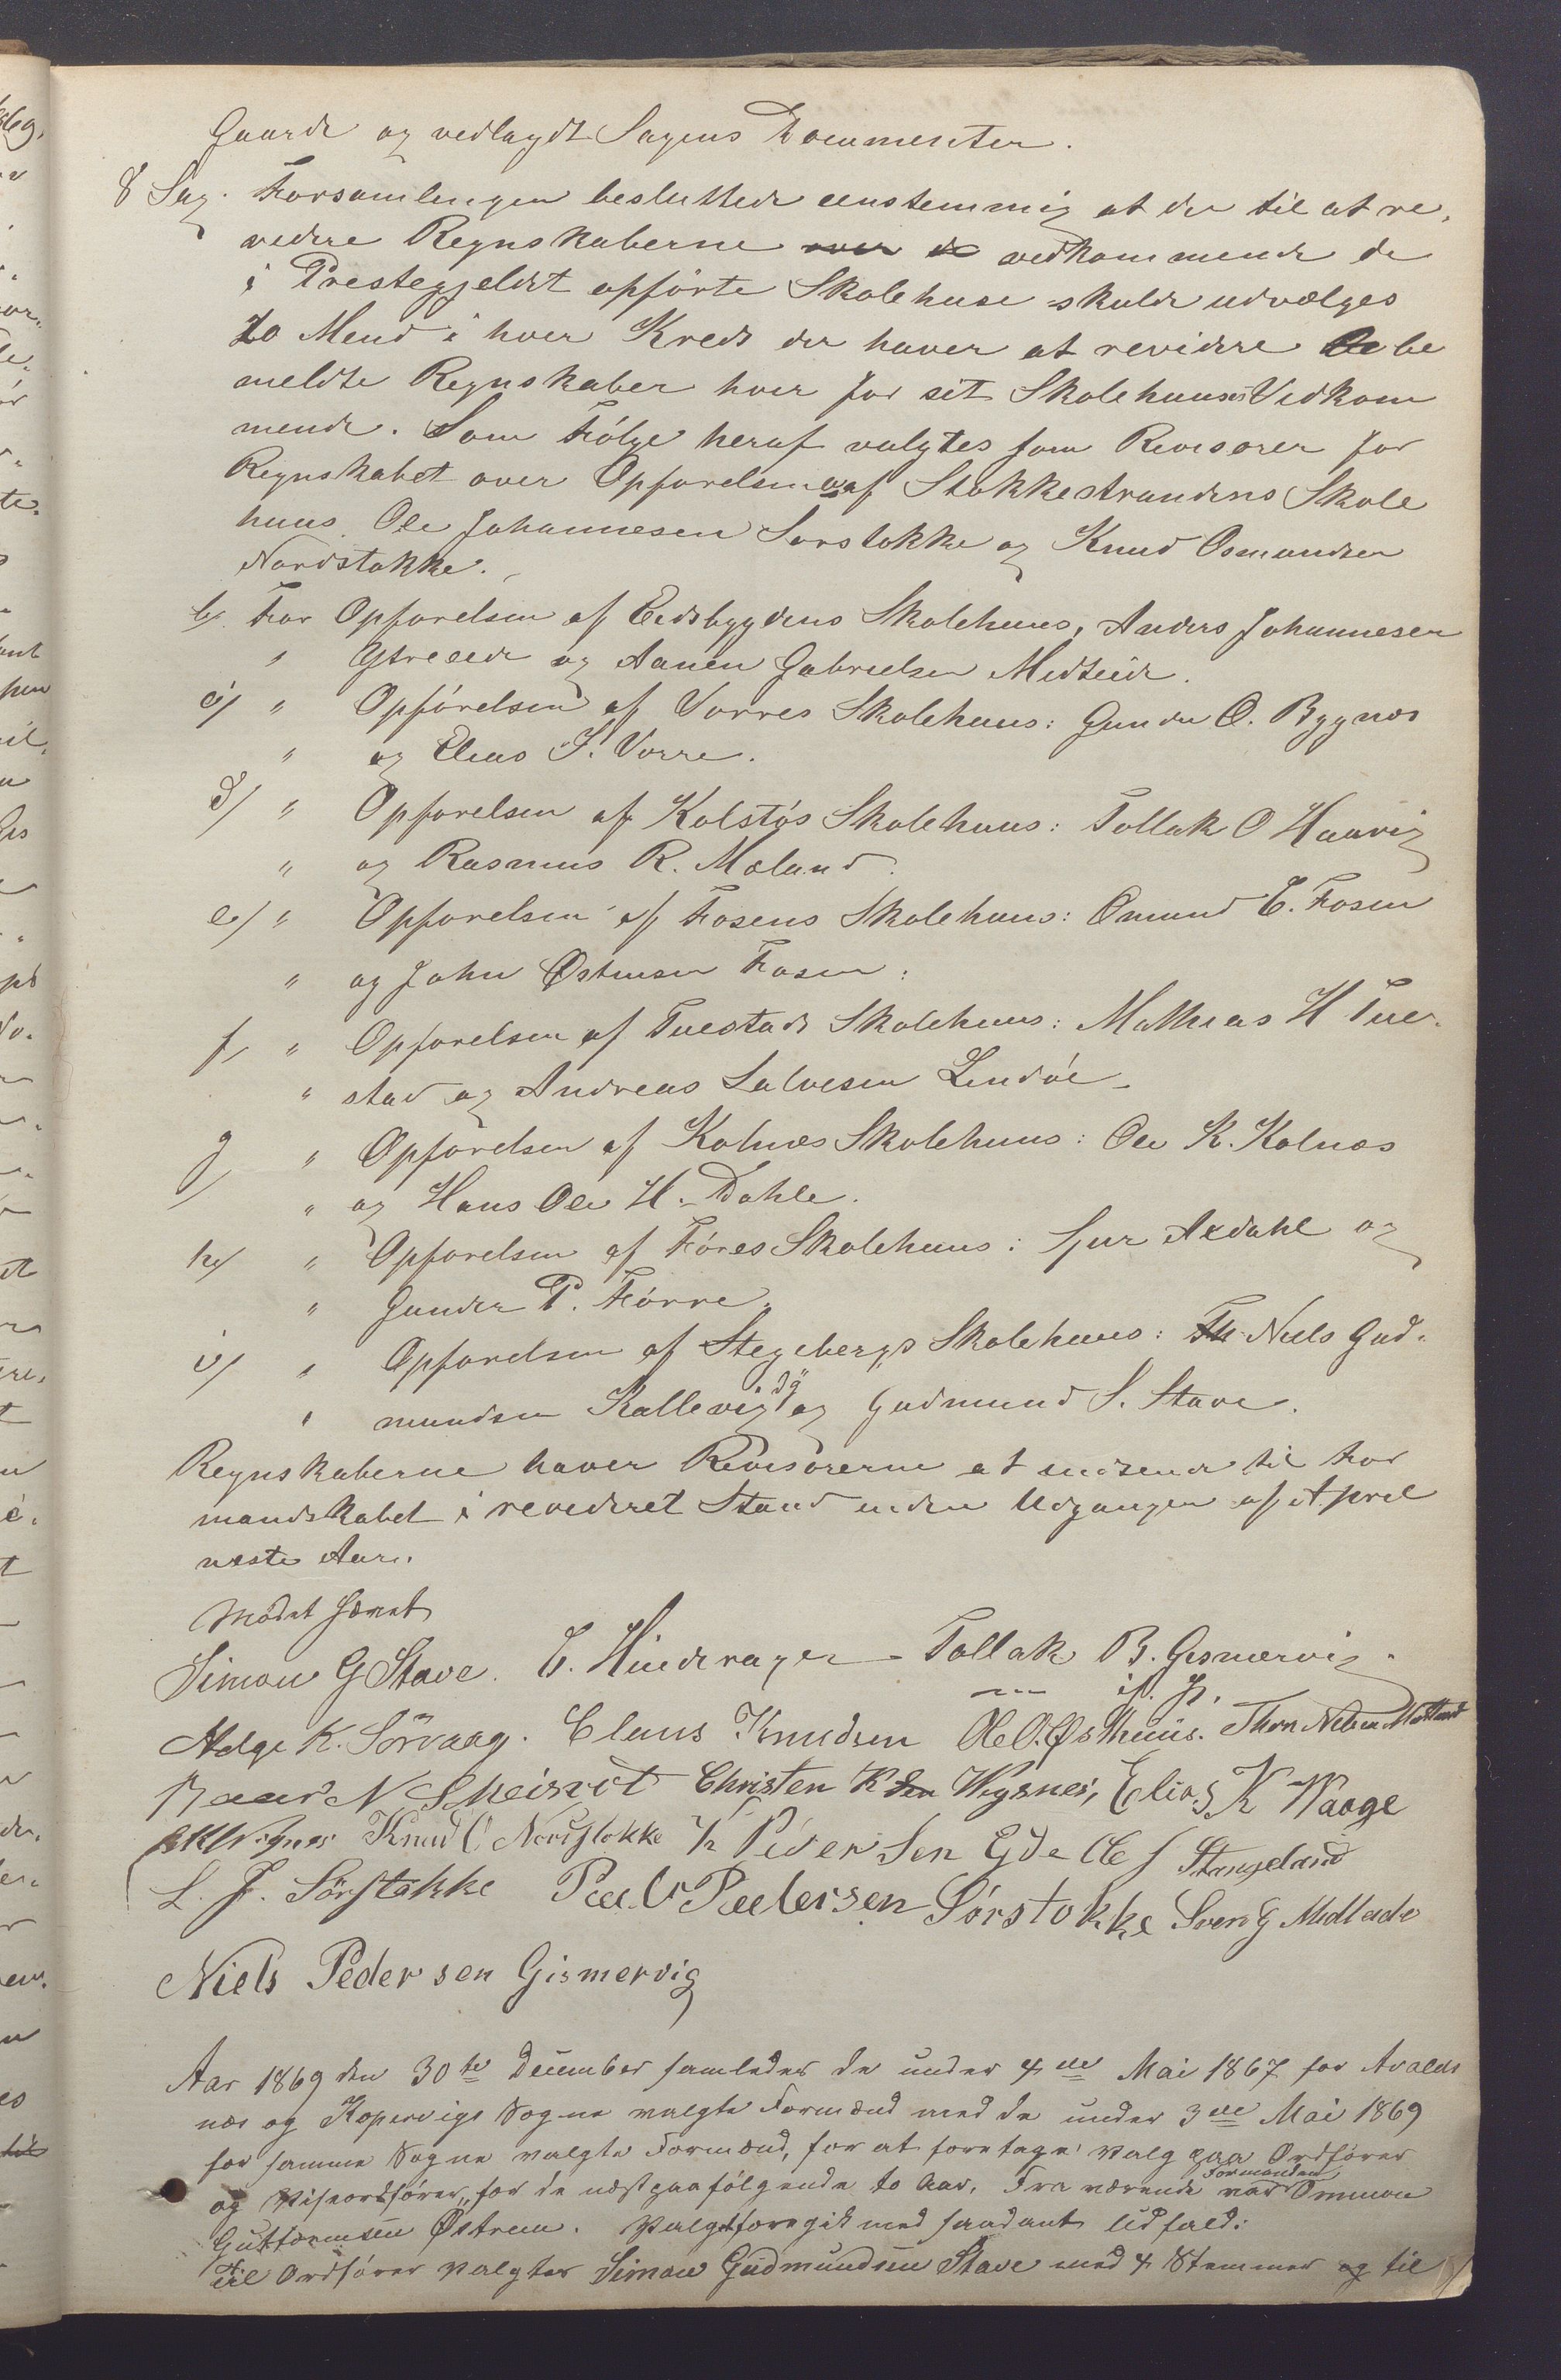 Gaarde og vedlagdt Sagens Documenter.
8 Sag. Forsamlingen besluttede eenstemmig at der til at re-
vedere Regnskaberne over de vedkommende de
i Prestegjeldet opførte Skolehuse skulde udvælges
to Mend i hver Kreds der haver at revidere be
meldte Regnskaber hver for sit Skolehuuses Vedkom
mende. Som Følge heraf valgtes som Revisorer for
Regnskabet over Opførelsen af Stokkestrandens Skole
huus Ole Johannesen Sørstokke og Knud Osmundsen
Nordstokke.
b/ For Opførelsen af Eidsbygdens Skolehuus, Anders Johannesen
" Ytreeide og Aanen Gabrielsen Midteide.
c/ " Opførelsen af Vorres Skolehuus: Gunder O. Bygnes
" og Elias I. Vorre.
d/ " Opførelsen af Kolstøs Skolehuus: Tollak O Haavig
" og Rasmus R. Moland.
e/ " Opførelsen af Fosens Skolehuus: Omund E. Fosen
" og John Østensen Fosen.
f/ " Opførelsen af Tuestads Skolehuus: Mathias H Tue-
" stad og Andreas Salvesen Lindøe
g/ " Opførelsen af Kolnes Skolehuus: Ole K. Kolnæs
" og Hans Ole H. Dahle.
h/ " Opførelsen af Føres Skolehuus: Sjur Aadahl og
" Gunder P. Førre.
i/ " Opførelsen af Stegebergs Skolehuus: Niels Gud-
" mundsen Kallevig og Gudmund S. Stave.
Regnskaberne haver Revisorerne at indsende til For
mandskabet i revederet Stand inden Udgangen af April
neste Aar.
Mødet hævet
Simon G Stave. E. Hinderager Tollak B. Gismervig.
Helge K. Sörvaag. Claus Knudsen Ole O. Østhuus. Thor Nelsen Matland
Baar N Skeisvol Christen K Wygsnes, Elias K Waage
Knud O Nordstokke K Pedersen Eide O S Stangeland
L. J. Sörstokke Paul Paulersen Sørstokke Sven G Midteide
Niels Pedersen Gismervig
Aar 1869 den 30te December samledes de under 4de Mai 1867 for Avalds
næs og Kopervigs Sogne valgte Formænd med de under 3de Mai 1869
for samme Sogne valgte Formænd, for at foretage Valg paa Ordfører
og Viseordfører, for de næstpaafølgende to Aar. Fraværende var Formanden Ommon
Guttormsen Østrem. Valget foregik med saadant Udfald:
Til Ordfører valgtes Simon Gudmundsen Stave med 4 Stemmer og til